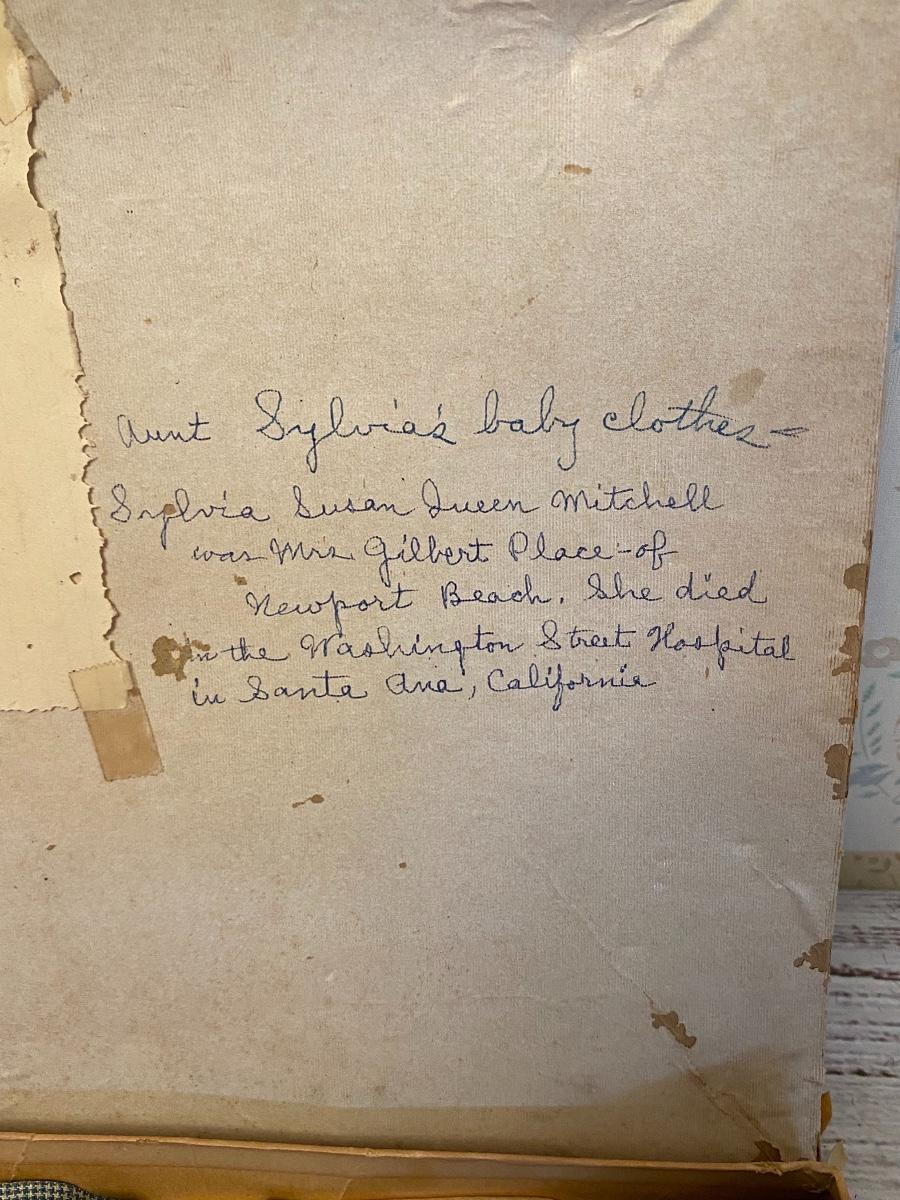 Aunt Sylvia's baby clothes-
Sylvia Susan Queen Mitchell
was Mrs Gilbert Place-of
Newport Beach. She died
in the Washington Street Hospital
in Santa Ana, California